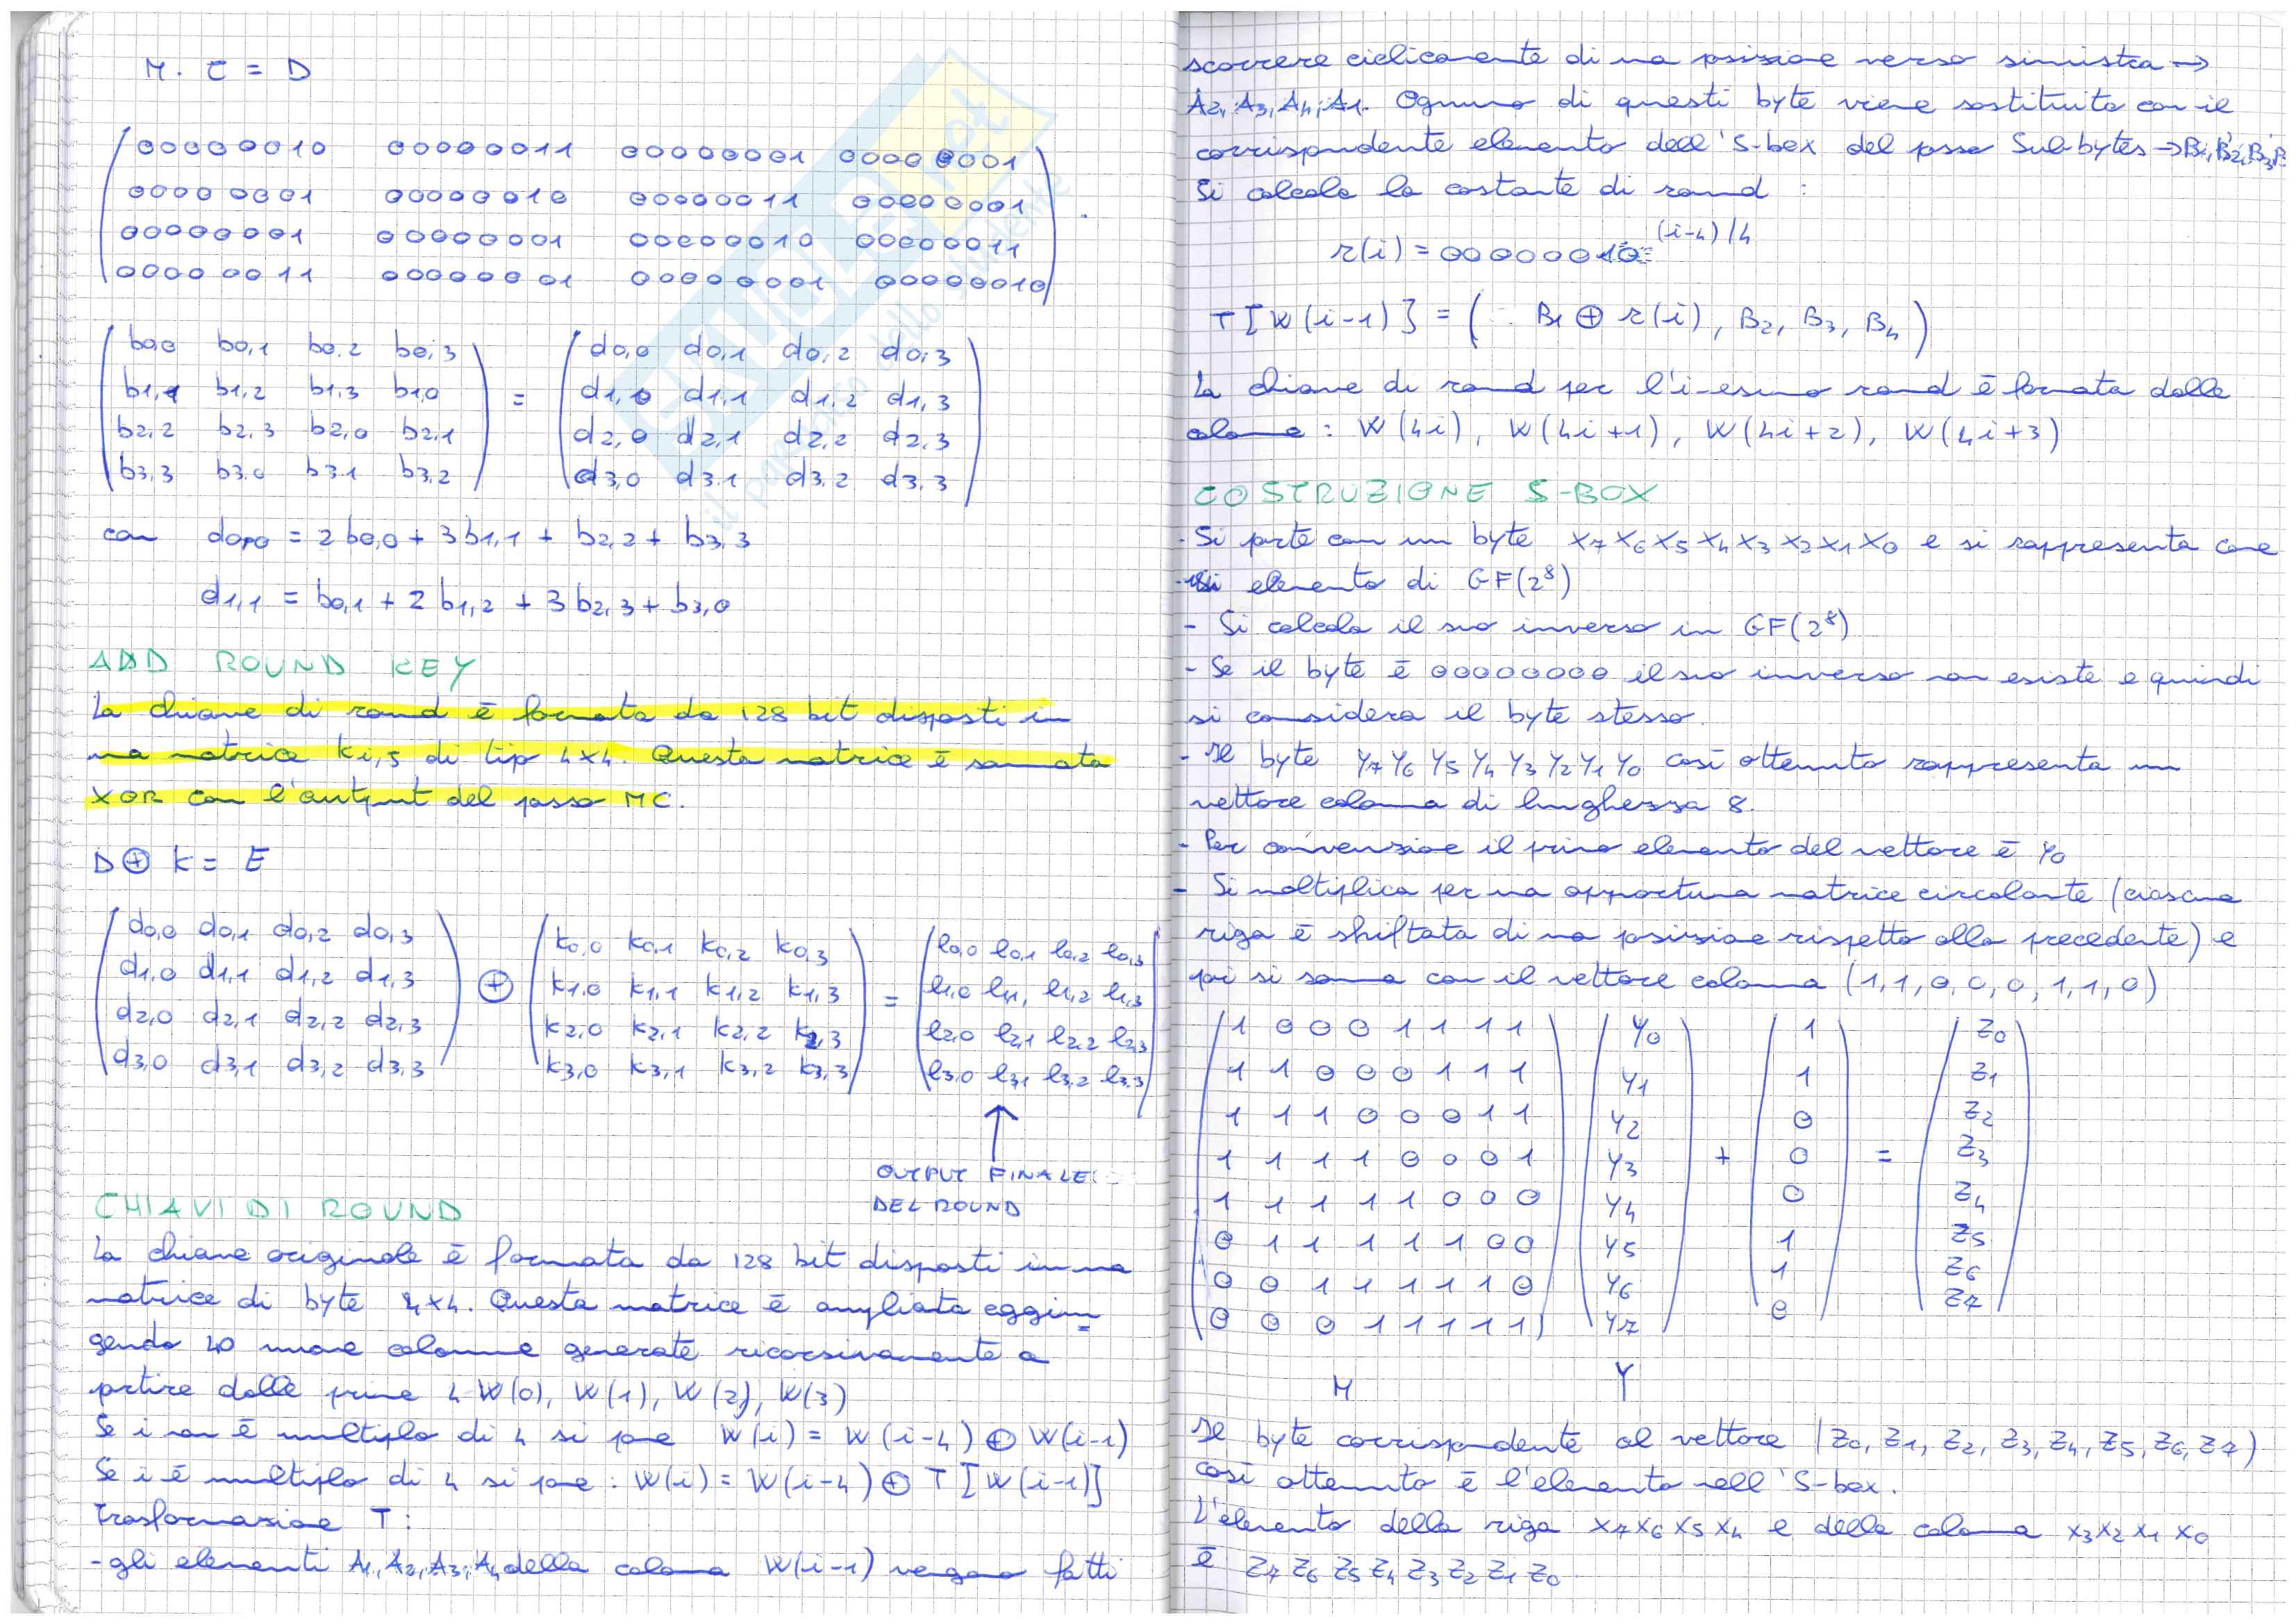 M · C = D
00000010 00000011 00000001 00000001
00000001 00000010 00000011 00000001
00000001 00000001 00000010 00000011
00000011 00000001 00000001 00000010
b0,0 b0,1 b0,2 b0,3
b1,1 b1,2 b1,3 b1,0
b2,2 b2,3 b2,0 b2,1
b3,3 b3,0 b3,1 b3,2
=
d0,0 d0,1 d0,2 d0,3
d1,0 d1,1 d1,2 d1,3
d2,0 d2,1 d2,2 d2,3
d3,0 d3,1 d3,2 d3,3
con d0,0 = 2b0,0 + 3b1,1 + b2,2 + b3,3
d1,1 = b0,1 + 2b1,2 + 3b2,3 + b3,0
ADD ROUND KEY
La chiave di round è formata da 128 bit disposti in
una matrice Ki,j di tipo 4x4. Questa matrice è sommata
XOR con l'output del passo MC.
D ⊕ K = E
d0,0 d0,1 d0,2 d0,3
d1,0 d1,1 d1,2 d1,3
d2,0 d2,1 d2,2 d2,3
d3,0 d3,1 d3,2 d3,3
⊕
k0,0 k0,1 k0,2 k0,3
k1,0 k1,1 k1,2 k1,3
k2,0 k2,1 k2,2 k2,3
k3,0 k3,1 k3,2 k3,3
=
e0,0 e0,1 e0,2 e0,3
e1,0 e1,1 e1,2 e1,3
e2,0 e2,1 e2,2 e2,3
e3,0 e3,1 e3,2 e3,3
OUTPUT FINALE
DEL ROUND
CHIAVI DI ROUND
La chiave originale è formata da 128 bit disposti in una
matrice di byte 4x4. Questa matrice è ampliata aggiun
gendo 40 nuove colonne generate ricorsivamente a
partire dalle prime 4 W(0), W(1), W(2), W(3)
Se i non è multiplo di 4 si pone W(i) = W(i-4) ⊕ W(i-1)
Se i è multiplo di 4 si pone : W(i) = W(i-4) ⊕ T[W(i-1)]
Trasformazione T:
- gli elementi A1, A2, A3, A4 della colonna W(i-1) vengono fatti
scorrere ciclicamente di una posizione verso sinistra →
A2, A3, A4, A1. Ognuno di questi byte viene sostituito con il
corrispondente elemento dell'S-box del passo Subbytes → B1, B2, B3, B
Si calcola la costante di round :
r(i) = 00000010^(i-4)/4
T[W(i-1)] = (B1 ⊕ r(i), B2, B3, B4)
La chiave di round per l'i-esimo round è formata dalle
colonne : W(4i), W(4i+1), W(4i+2), W(4i+3)
COSTRUZIONE S-BOX
- Si parte con un byte x7x6x5x4x3x2x1x0 e si rappresenta come
elemento di GF(2⁸)
- Si calcola il suo inverso in GF(2⁸)
- Se il byte è 00000000 il suo inverso non esiste e quindi
si considera il byte stesso.
- Il byte y7y6y5y4y3y2y1y0 così ottenuto rappresenta un
vettore colonna di lunghezza 8.
- Per convenzione il primo elemento del vettore è y0
- Si moltiplica per una opportuna matrice circolante (ciascuna
riga è shiftata di una posizione rispetto alla precedente) e
poi si somma con il vettore colonna (1,1,0,0,0,1,1,0)
1 0 0 0 1 1 1 1 y0 1 z0
1 1 0 0 0 1 1 1 y1 1 z1
1 1 1 0 0 0 1 1 y2 0 z2
1 1 1 1 0 0 0 1 y3 + 0 = z3
1 1 1 1 1 0 0 0 y4 0 z4
0 1 1 1 1 1 0 0 y5 1 z5
0 0 1 1 1 1 1 0 y6 1 z6
0 0 0 1 1 1 1 1 y7 0 z7
M Y
Il byte corrispondente al vettore (z0, z1, z2, z3, z4, z5, z6, z7)
così ottenuto è l'elemento nell'S-box.
L'elemento della riga x7x6x5x4 e della colonna x3x2x1x0
è z7z6z5z4z3z2z1z0